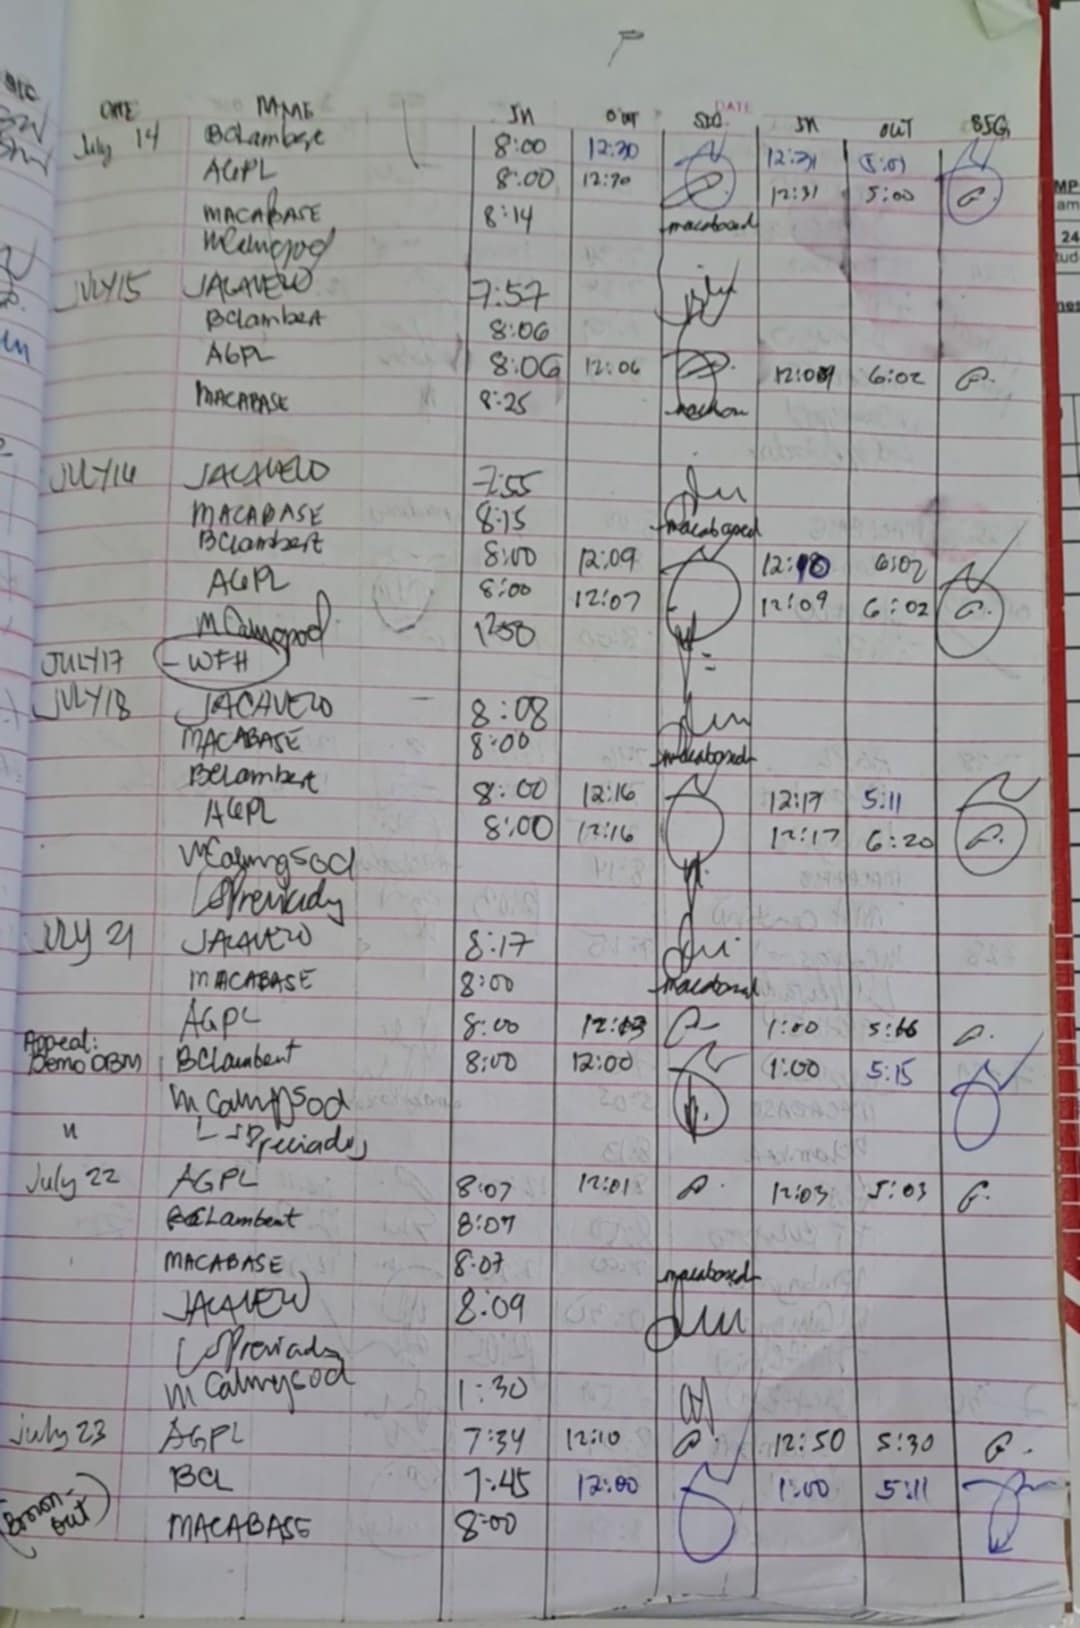 DATE NAME IN OUT SIG. IN OUT SIG
DATE
July 14 BClambert 8:00 12:30 12:31 5:01
AGPL 8:00 12:30 12:31 5:00
MACABASE 8:14 macabased
MCalmysod
JULY 15 JACAVERO 7:57
BClambert 8:06
AGPL 8:06 12:06 6:02
MACABASE 8:25
JULY 16 JACAVERO 7:55
MACABASE 8:15 macabased
BClambert 8:00 12:09 6:02
AGPL 8:00 12:07 12:09 6:02
MCalmysod
JULY 17 - WFH
JULY 18 JACAVERO 8:08
MACABASE 8:00 macabased
BClambert 8:00 12:16 12:17 5:11
AGPL 8:00 12:16 12:17 6:20
MCalmysod
LSPreciados
JULY 21 JACAVERO 8:17
MACABASE 8:00 macabased
AGPL 8:00 1:00
Appeal:
Demo OBM BClambert 8:00 12:00 1:00 5:15
MCalmysod
" LSPreciados
July 22 AGPL 8:07 12:01 12:03 5:03
BCLambert 8:07
MACABASE 8:07 macabased
JACAVERO 8:09
LSPreciados
MCalmysod 1:30
July 23 AGPL 7:34 12:10 12:50 5:30
BCL 7:45 12:00 1:00 5:11
(Brown-out) MACABASE 8:00